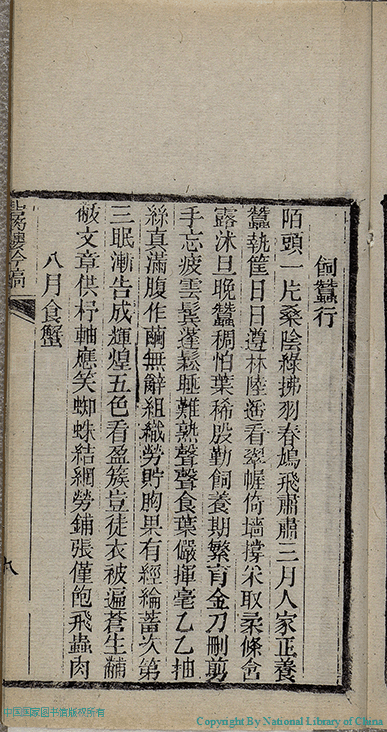 飼蠶行
陌頭一片桑陰綠拂羽春鳩飛肅肅三月人家正養
蠶執筐日日遵林陸遙看翠幄倚墻撐采取柔條含
露沐旦晚蠶稠怕葉稀殷勤飼養期繁育金刀刪剪
手忘疲雲鬢蓬鬆睡難熟聲聲食葉儼揮毫乙乙抽
絲真滿腹作繭無辭組織勞貯胸果有經綸蓄次第
三眠漸告成輝煌五色看盈簇豈徒衣被遍蒼生黼
黻文章供杼軸應笑蜘蛛結網勞鋪張僅飽飛蟲肉
八月食蟹
樓吟稿
九
中国国家图书馆版权所有
Copyright By National Library of China